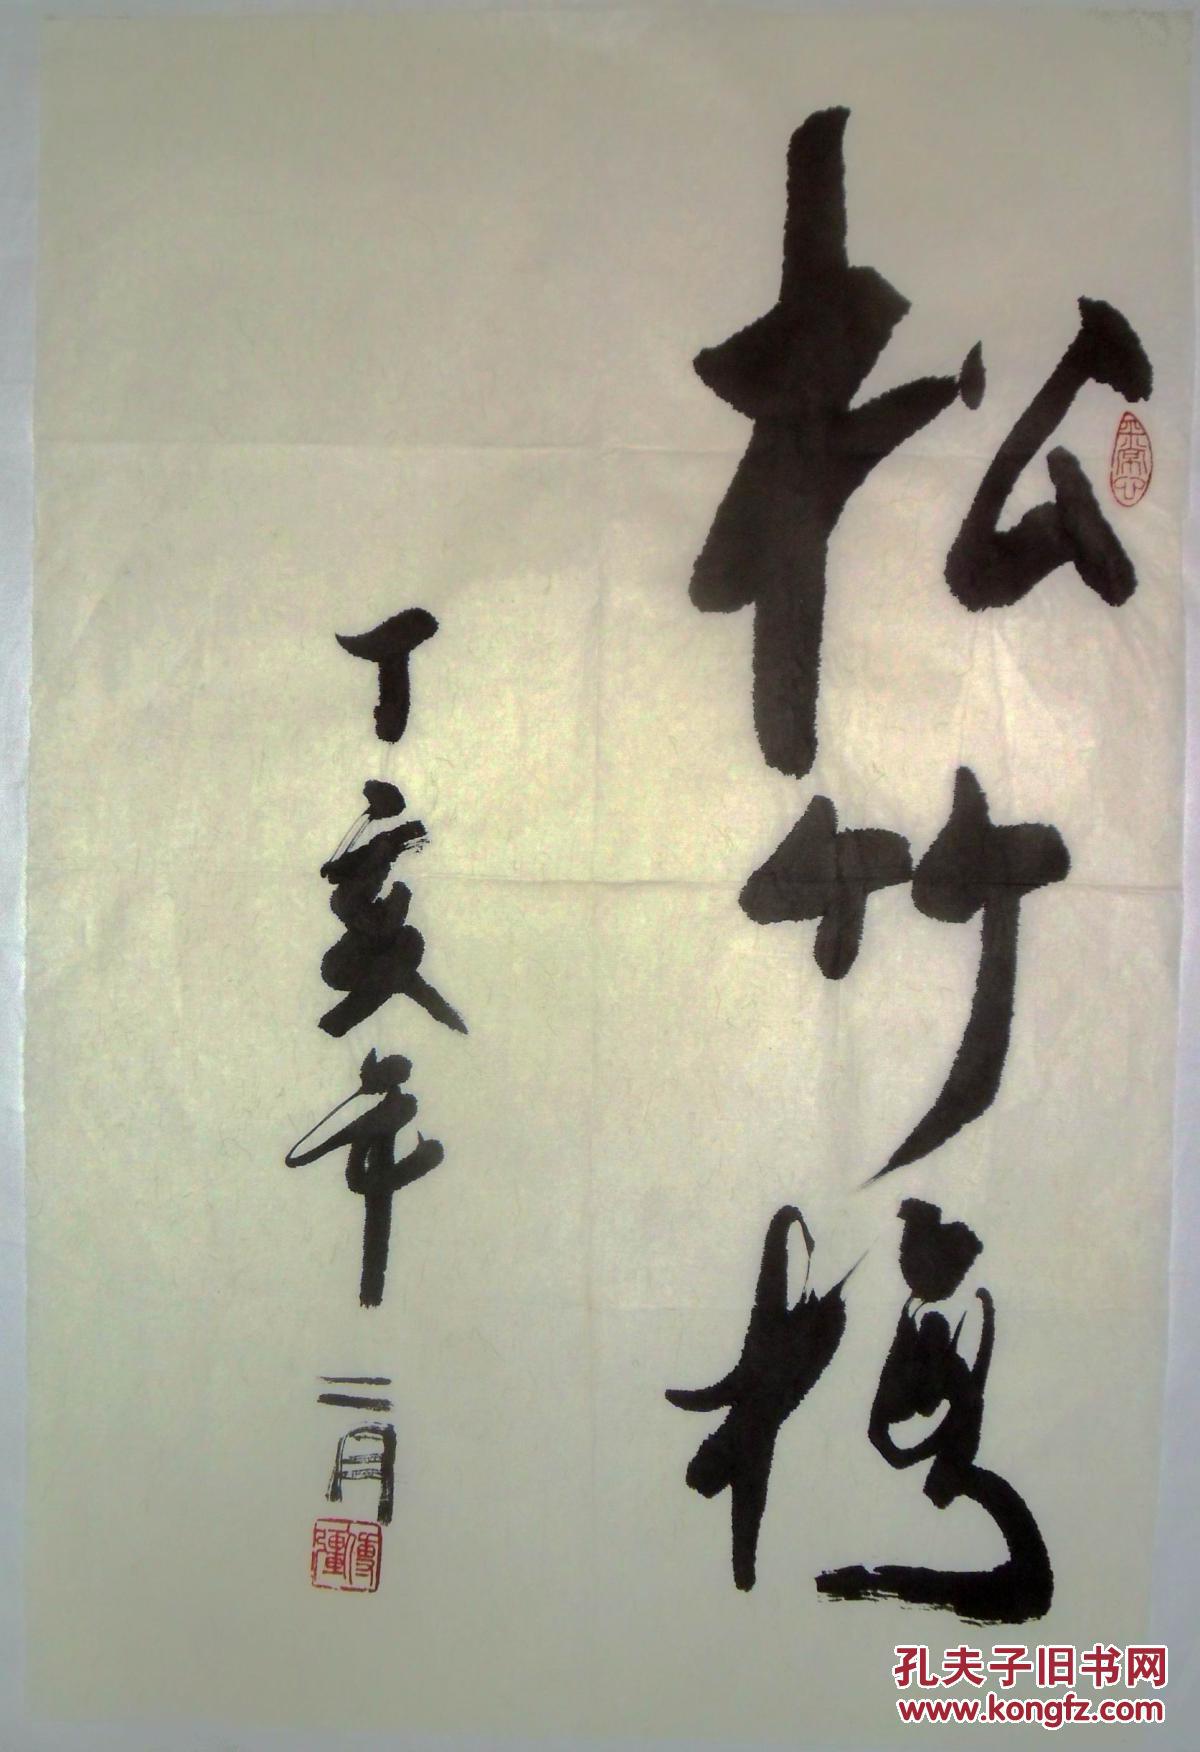 松竹梅
丁亥年二月
孔夫子旧书网
www.kongfz.com